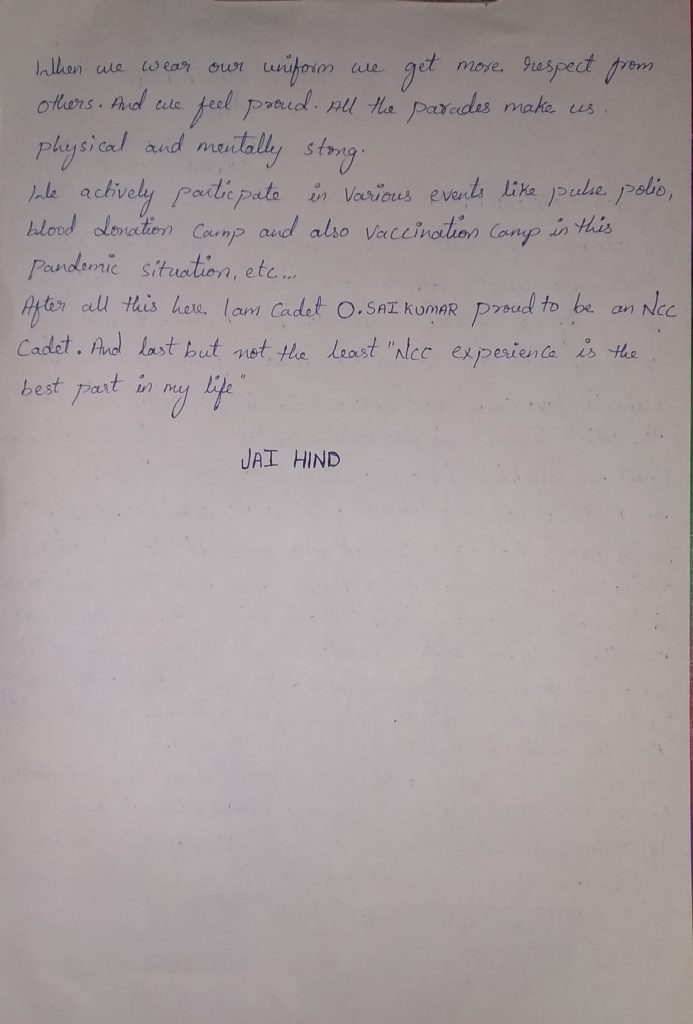 When we wear our uniform we get more respect from
others. And we feel proud. All the parades make us.
physical and mentally stong.
We actively particpate in Various events like pulse polio,
blood donation Camp and also Vaccination Camp in this
Pandemic situation, etc...
After all this here I am Cadet O.SAI KUMAR proud to be an NCC
Cadet. And last but not the least "NCC experience is the
best part in my life"
JAI HIND